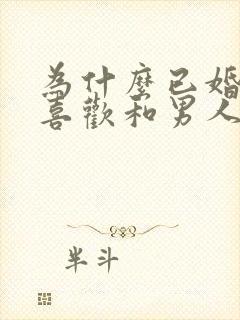 為什麼已婚
喜歡和男人
半斗